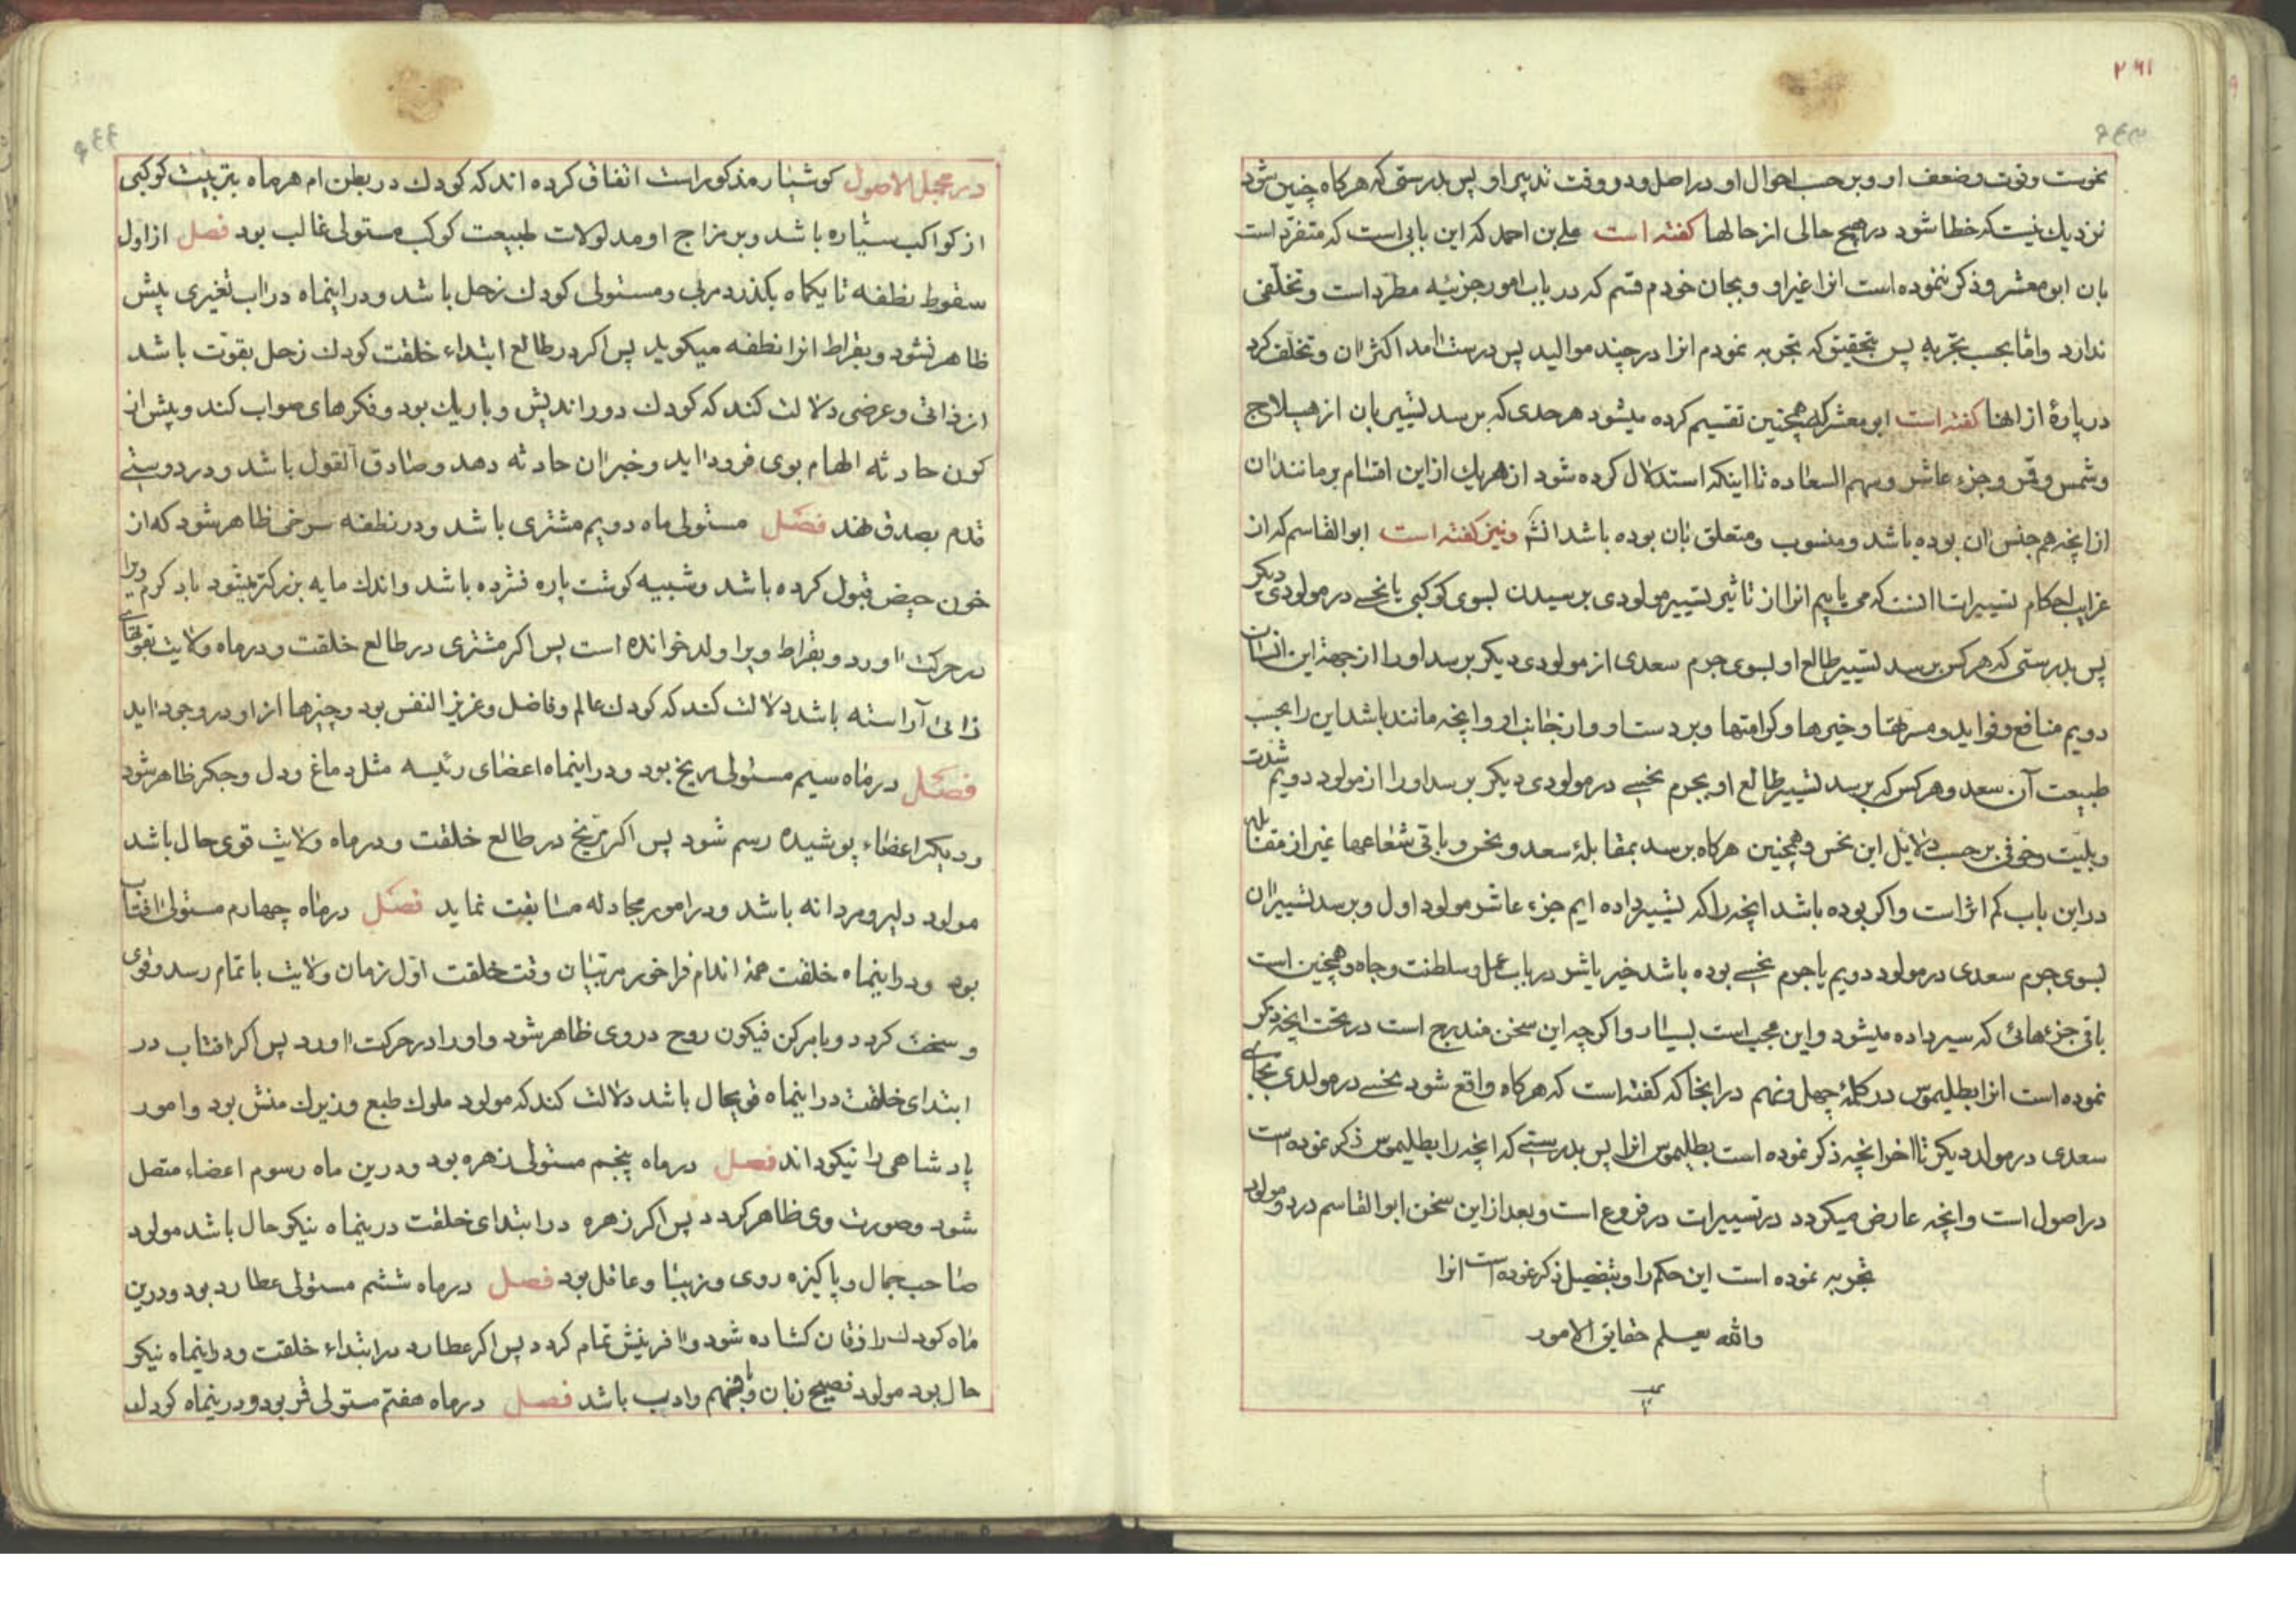 ۲۶۱
نحوست و قوت و ضعف او و بر حسب احوال او در اصل و در وقت تدبیر او پس بدرستی که هرکاه چنین شود
نزدیک نیست که خطا شود در هیچ حالی از حالها کفته است علی بن احمد که این بابی است که متفرد است
بان ابو معشر و ذکر ننموده است انرا غیر او و بجان خودم قسم که در باب امور جزئیه مطرد است و تخلفی
ندارد و اما بحسب تجربه پس بتحقیق که تجربه نمودم انرا در چند موالید پس درست امد اکثر ان و تخلف کرد
در پارهٔ از انها کفته است ابو معشر که همچنین تقسیم کرده میشود هر حدی که برسد تسییر بان از هیلاج
و شمس و قمر و جزء عاشر و سهم السعاده تا اینکه استدلال کرده شود از هر یک از این اقسام بر مانند ان
از انچه هم جنس ان بوده باشد و منسوب و متعلق بان بوده باشد و نیز کفته است ابو القاسم که از
غرایب احکام تسییرات انست که می یابیم انرا از تاثیر تسییر مولودی برسیدن بسوی کوکبی یا نحسی در مولودی دیکر
پس بدرستی که هرکس برسد تسییر طالع او بسوی جرم سعدی از مولودی دیکر برسد او را از جهة این انسان
دویم منافع و فواید و مسرتها و خیرها و کرامتها و بر دست او و از جانب او و انچه مانند باشد این را بحسب
طبیعت آن سعد و هرکس که برسد تسییر طالع او بجرم نحسی در مولودی دیکر برسد او را از مولود دویم شدت
و بلیت و خوفی بر حسب دلایل این نحس و همچنین هرکاه برسد بمقابلهٔ سعد و نحس و باقی شعاعها غیر از مقابله
در این باب کم اثر است و اکر بوده باشد انچه را که تسییر داده ایم جزء عاشر مولود اول و برسد تسییر ان
بسوی جرم سعدی در مولود دویم یا جرم نحسی بوده باشد خیر یا شر در باب عمل و سلطنت و جاه و همچنین است
باقی جزءهائی که سیر داده میشود و این عجیب است بسیار و اکر چه این سخن مندرج است در تحت انچه ذکر
نموده است انرا بطلیموس در کلمهٔ چهل و نهم در انجا که کفته است که هرکاه واقع شود نحسی در مولدی بجای
سعدی در مولد دیکر تا اخر انچه ذکر نموده است بطلیموس انرا پس بدرستی که انچه را بطلیموس ذکر نموده است
در اصول است و انچه عارض میکردد در تسییرات در فروع است و بعد از این سخن ابو القاسم در دو مولود
تجربه نموده است این حکم را و بتفصیل ذکر نموده است انرا
والله یعلم حقایق الامور
در مجمل الاصول کوشیار مذکور است اتفاق کرده اند که کودک در بطن ام هر ماه بتربیت کوکبی
از کواکب سیاره باشد و بر مزاج او مدلولات طبیعت کوکب مستولی غالب بود فصل از اول
سقوط نطفه تا یکماه بکذرد مربی و مستولی کودک زحل باشد و در اینماه در اب تغیری بیش
ظاهر نشود و بقراط انرا نطفه میکوید پس اکر در طالع ابتداء خلقت کودک زحل بقوت باشد
از ذاتی و عرضی دلالت کند که کودک دور اندیش و باریک بود و فکرهای صواب کند و پیش از
کون حادثه الهام بوی فرود اید و خبر ان حادثه دهد و صادق القول باشد و در دوستی
قدم بصدق نهد فصل مستولی ماه دویم مشتری باشد و در نطفه سرخی ظاهر شود که از
خون حیض قبول کرده باشد و شبیه کوشت پاره فشرده باشد و اندک مایه بزرکتر میشود باد کرم ویرا
در حرکت اورد و بقراط ویرا ولد خوانده است پس اکر مشتری در طالع خلقت و در ماه ولایت بقوتهای
ذاتی آراسته باشد دلالت کند که کودک عالم و فاضل و عزیز النفس بود و چیزها از او در وجود اید
فصل در ماه سیم مستولی مریخ بود و در اینماه اعضای رئیسه مثل دماغ و دل و جکر ظاهر شود
و دیکر اعضاء پوشیده رسم شود پس اکر مریخ در طالع خلقت و در ماه ولایت قوی حال باشد
مولود دلیر و مردانه باشد و در امور مجادله مسابقت نماید فصل در ماه چهارم مستولی افتاب
بود و در اینماه خلقت همهٔ اندام فراخور مرتبهٔ ان وقت خلقت اول زمان ولایت با تمام رسد و قوی
و سخت کردد و بامر کن فیکون روح در وی ظاهر شود و او را در حرکت اورد پس اکر افتاب در
ابتدای خلقت در اینماه قویحال باشد دلالت کند که مولود ملوک طبع و زیرک منش بود و امور
پادشاهی را نیکو داند فصل در ماه پنجم مستولی زهره بود و درین ماه رسوم اعضاء متصل
شود و صورت وی ظاهر کردد پس اکر زهره در ابتدای خلقت درینماه نیکو حال باشد مولود
صاحب جمال و پاکیزه روی و زیبا و عاقل بود فصل در ماه ششم مستولی عطارد بود و درین
ماه کودک را زبان کشاده شود و افرینش تمام کردد پس اکر عطارد در ابتداء خلقت و در اینماه نیکو
حال بود مولود فصیح زبان و بافهم و ادب باشد فصل در ماه هفتم مستولی قمر بود و درینماه کودک